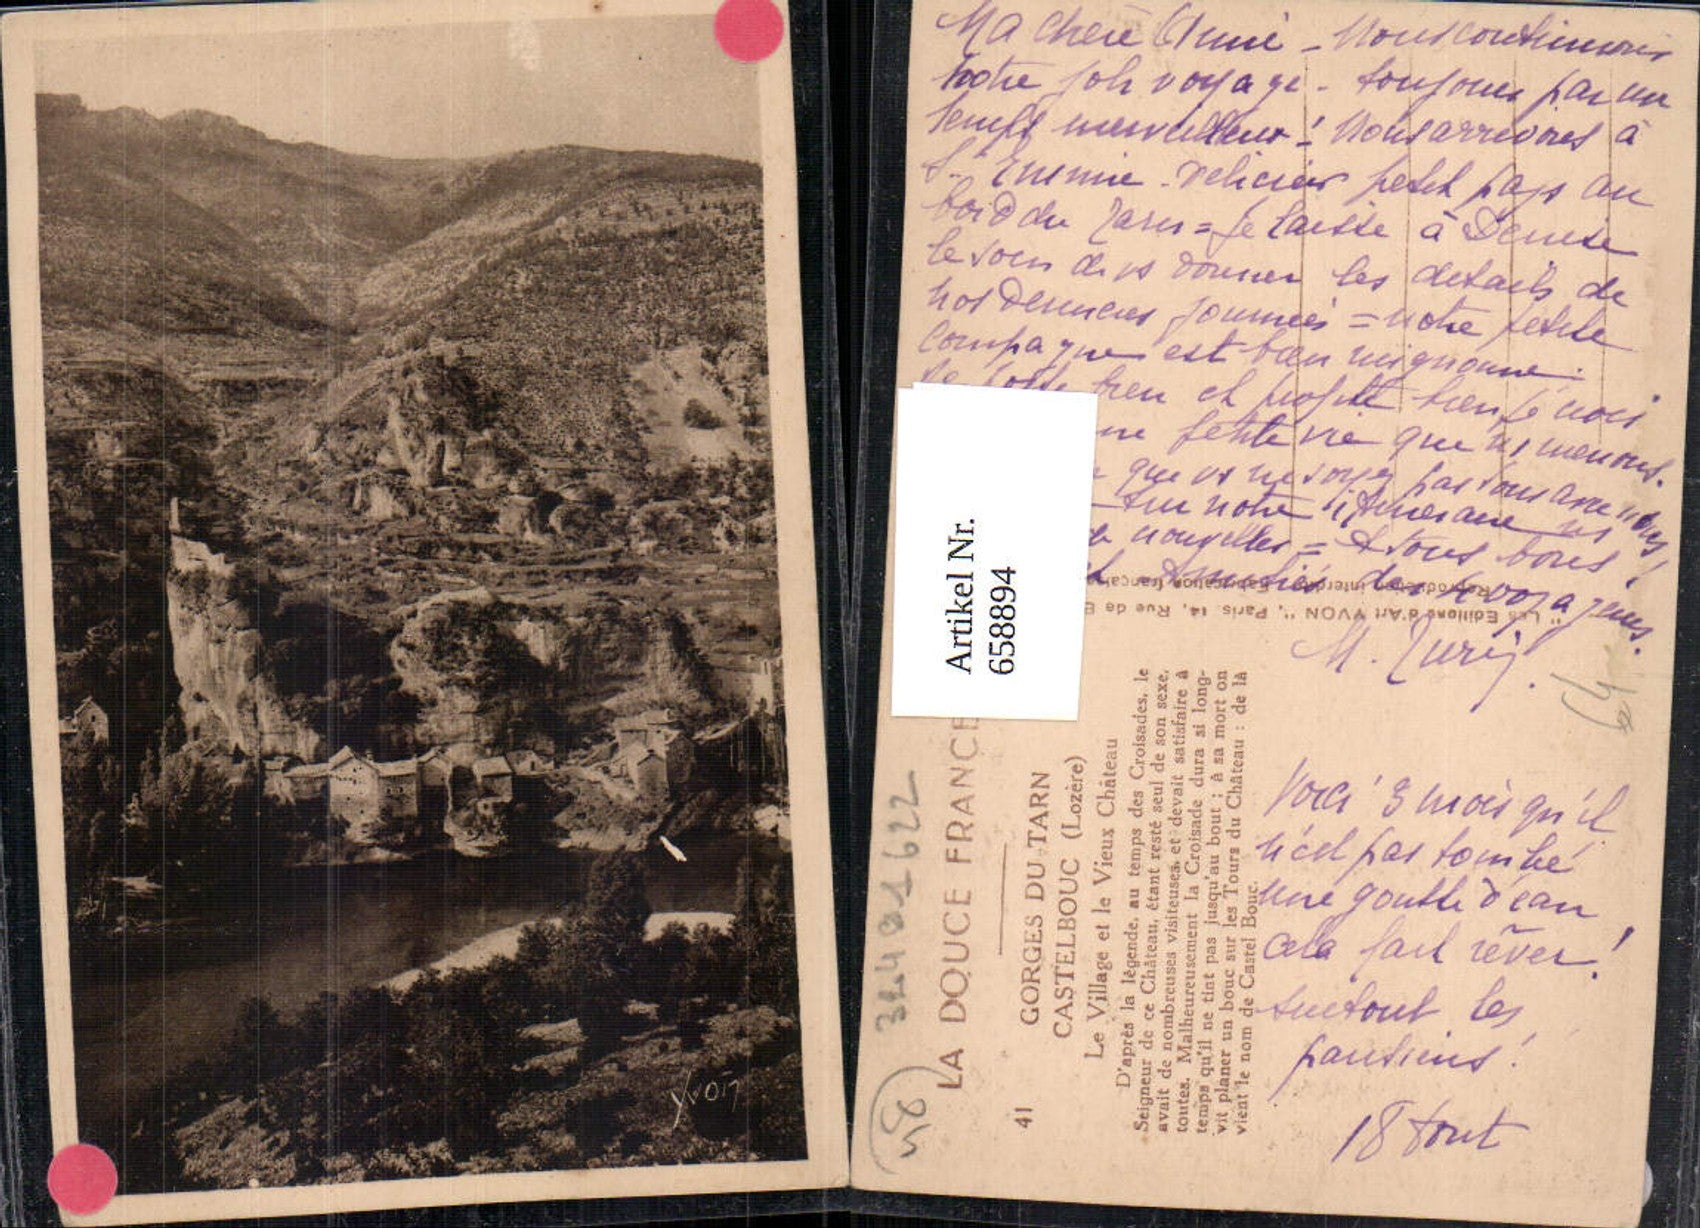 YVON
Ma chère Annie - Nous continuons
notre joli voyage - toujours par un
temps merveilleux ! Nous arrivons à
Ste Enimie - délicieux petit pays au
bord du Tarn = Je laisse à Denise
le soin de vs donner les détails de
nos dernières journées = notre petite
compagne est bien mignonne.
se porte bien et profite bien je crois
petite vie que ns menons.
que vs ne soyez pas tous avec nous
sur notre itinéraire ns
nouvelles = A tous bons
Amitiés des voyageurs.
M.
Voici 3 mois qu'il
n'est pas tombé
une goutte d'eau
cela fait rêver !
surtout les
parisiens !
18 Août
Artikel Nr.
658894
"Les Editions d'Art YVON", Paris 14, Rue de
Reproduction interdite Fabrication française
324 01622
LA DOUCE FRANCE
41
GORGES DU TARN
CASTELBOUC (Lozère)
Le Village et le Vieux Château
D'après la légende, au temps des Croisades, le
Seigneur de ce Château, étant resté seul de son sexe,
avait de nombreuses visiteuses, et devait satisfaire à
toutes. Malheureusement la Croisade dura si long-
temps qu'il ne tint pas jusqu'au bout ; à sa mort on
vit planer un bouc sur les Tours du Château : de là
vient le nom de Castel Bouc.